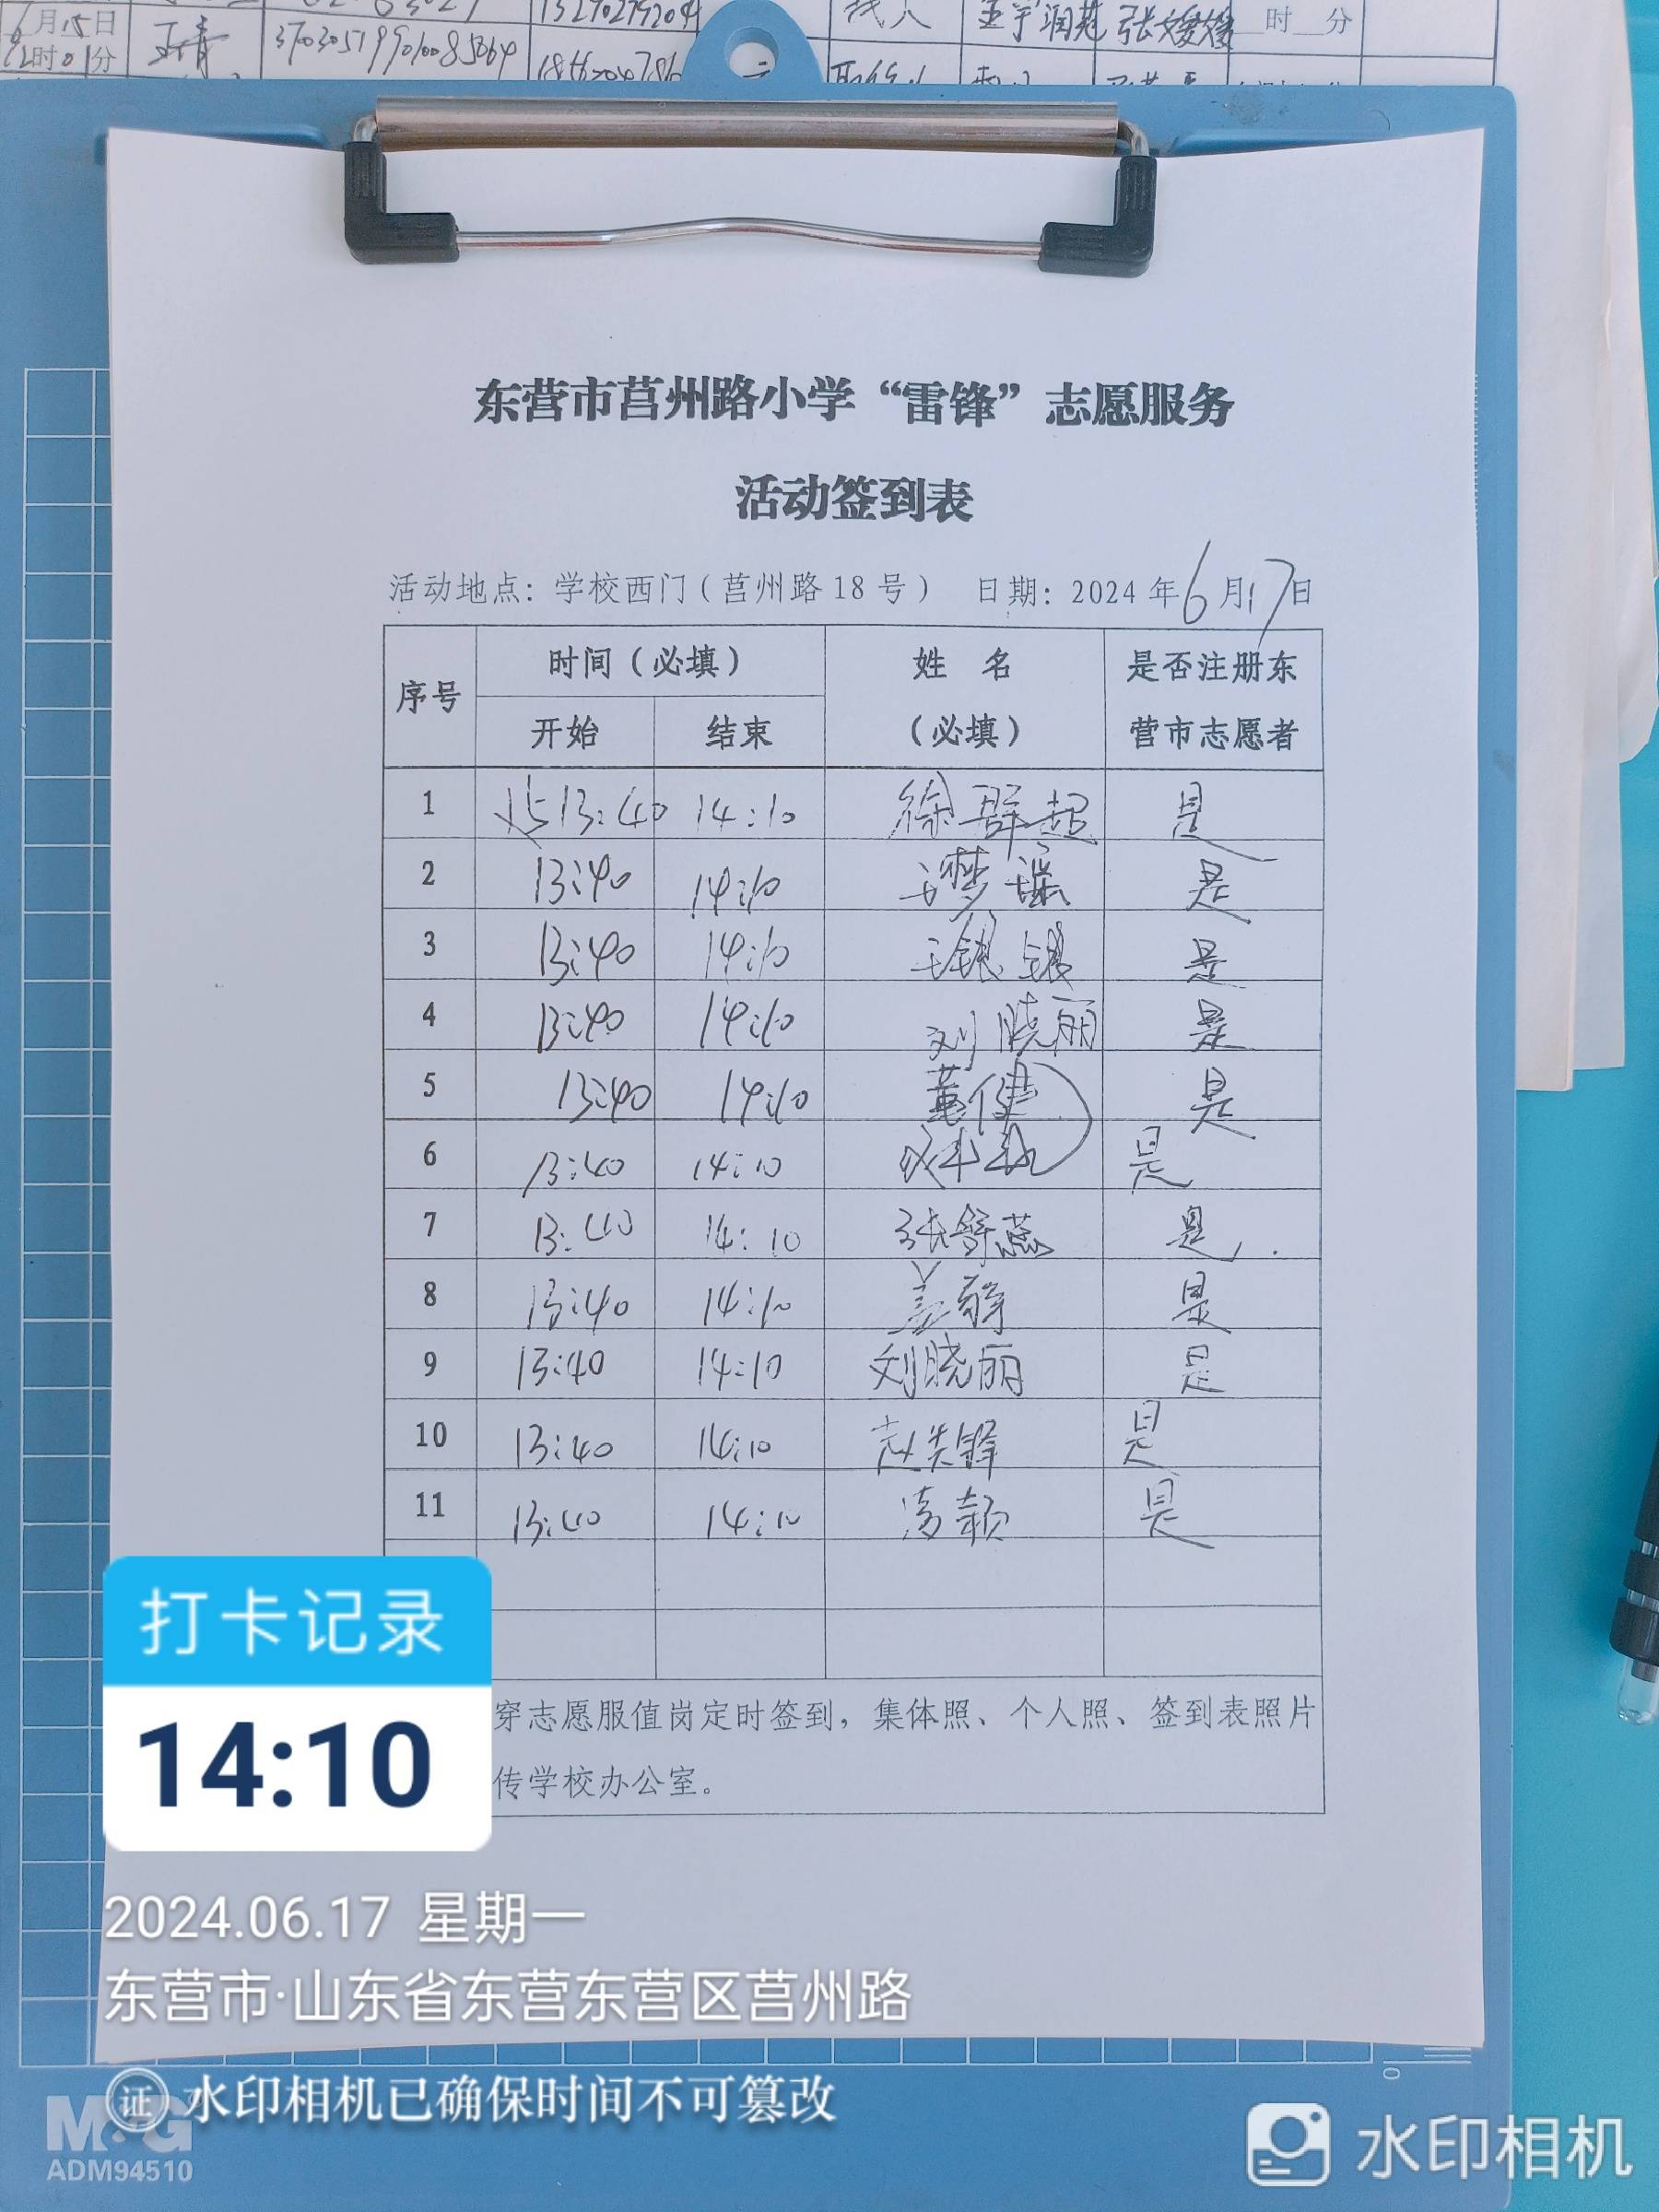 6月15日
12时01分
时 分
东营市莒州路小学“雷锋”志愿服务
活动签到表
活动地点：学校西门（莒州路18号） 日期：2024年6月17日
序号 时间（必填） 姓 名（必填） 是否注册东营市志愿者
开始 结束
1 13:40 14:10 徐群超 是
2 13:40 14:10 王梦瑶 是
3 13:40 14:10 是
4 13:40 14:10 刘晓丽 是
5 13:40 14:10 董健 是
6 13:40 14:10 是
7 13:40 14:10 张舒燕 是
8 13:40 14:10 是
9 13:40 14:10 刘晓丽 是
10 13:40 14:10 是
11 13:40 14:10 是
穿志愿服值岗定时签到，集体照、个人照、签到表照片
传学校办公室。
打卡记录
14:10
2024.06.17 星期一
东营市·山东省东营东营区莒州路
证 水印相机已确保时间不可篡改
M&G
ADM94510
水印相机